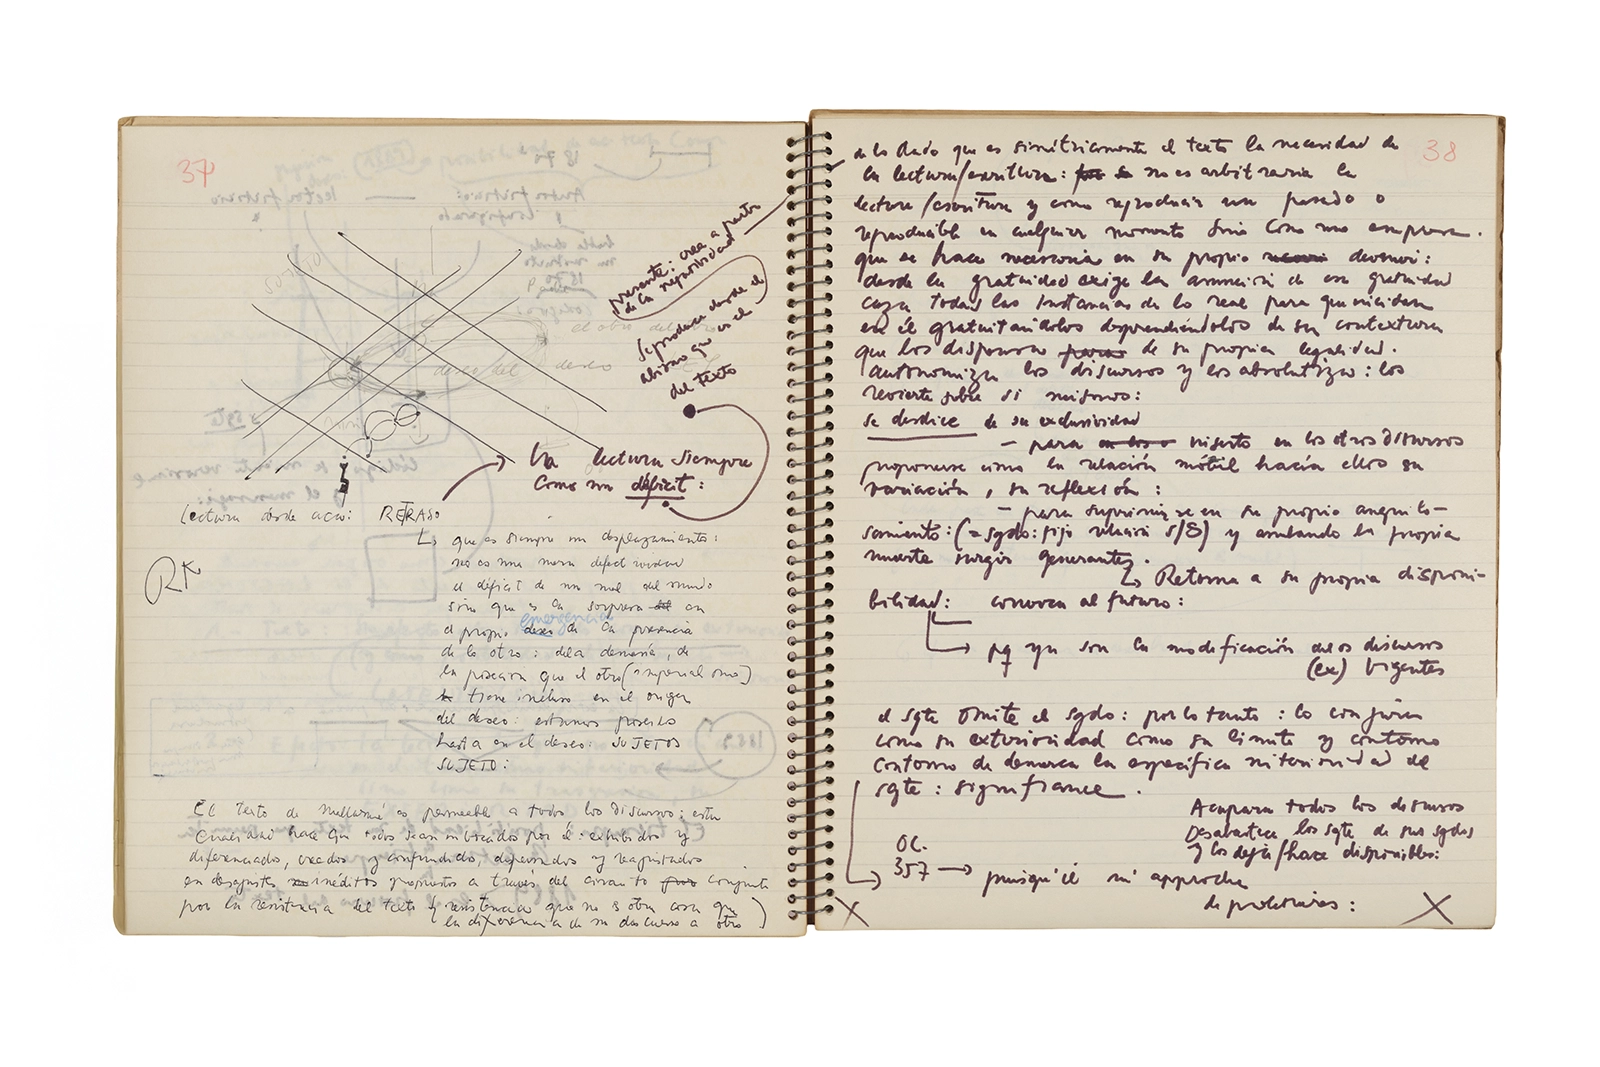 37
presente: crea a partir
de la negatividad
se produce desde el
abismo que es el
del texto
el otro del
deseo del deseo
La lectura siempre
como un déficit:
Lectura desde acá: RETRASO
que es siempre un desplazamiento:
no es una mera defectividad
el déficit de un mal del mundo
sino que es la sorpresa en
emergencia
el propio deseo de la presencia
de lo otro: de la demasía, de
la posesión que el otro
tiene incluso en el origen
del deseo: estamos poseídos
hasta en el deseo: SUJETOS
SUJETO:
El texto de Mallarmé es permeable a todos los discursos: esta
cualidad hace que todos sean imbricados por él: exhibidos y
diferenciados, usados y confundidos, deformados y reajustados
en desajustes inéditos propuestos a través del conjunto
por la resistencia del texto y resistencia que no es otra cosa que
la diferencia de su discurso a otro)
38
de lo dado que es simétricamente el texto la necesidad de
la lectura/escritura: no es arbitraria la
lectura/escritura y como reproducir un pasado o
reproducible en cualquier momento sino como una empresa
que se hace necesaria en su propio devenir:
desde la gratuidad exige la asunción de esa gratuidad
caza todas las instancias de lo real para que incidan
en él gratuitándolos desprendiéndolos de su contextura
que los dispensa de su propia legalidad.
autonomiza los discursos y los absolutiza: los
revierte sobre sí mismos:
se desdice de su exclusividad
- para inserto en los otros discursos
proponerse como la relación móvil hacia ellos su
variación, su reflexión:
- para suprimirse en su propio anquilo-
samiento: (= sgdo: fijo relación s/S) y anulando la propia
muerte surgir generantes.
Retorna a su propia disponi-
bilidad: convoca al futuro:
pq ya son la modificación de los discursos
(ex) vigentes
el sgte omite el sgdo: por lo tanto: lo configura
como su exterioridad como su límite y contorno
contorno de demarca la específica interioridad del
sgte: significance.
Acapara todos los discursos
Desabastece los sgte de sus sgdos
y los deja/hace disponibles:
OC.
357 → puisqu'il m'approche
de prolétaires: